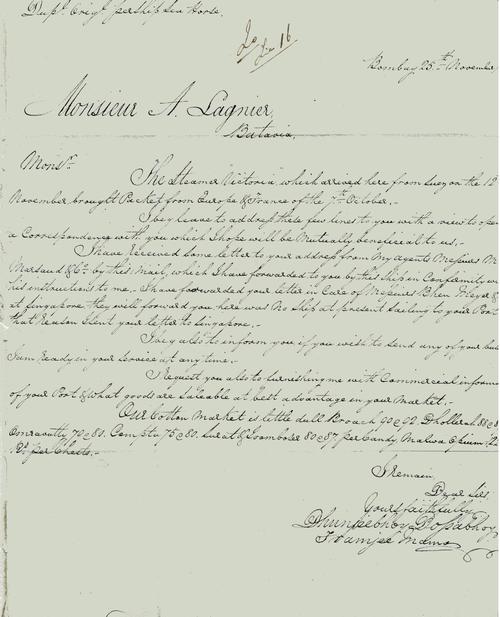 Dup.t Orig.l per Ship Sea Horse.
Bombay 25.th November
Monsieur A. Lagnier,
Batavia.
Mons.r
The Steamer Victoria, which arrived here from Suez on the 12
November brought Packet from Europe & France of the 7.th October.-
I beg leave to address these few lines to you with a view to open
a Correspondence with you which I hope will be Mutually beneficial to us.-
I have received some letter to your address from My Agents Messieurs
Marsaud & C.o by this Mail, which I have forwarded to you by this ship in Conformity
his instructions to me.- I have forwarded your letter in Care of Messieurs Bhen Meyer &
at Singapore they will forward you here was No Ship at present Sailing to your Port
that Reason I Sent your letter to Singapore.-
I beg also to inform you if you wish to send any of your
I am Ready in your Service at any time.-
I request you also to furnishing me with Commercial
of your Port & what goods are Saleable at best advantage in your Market.-
Our Cotton Market is little dull Broach 90@92. Dhollerah 88@
70@80. Compta 75@80. Surat & 80@87 per Candy Malwa Opium
R.s per Chests.-
I remain
Dear Sir
Yours faithfully
Dhunjeebhoy Dossabhoy
Framjee